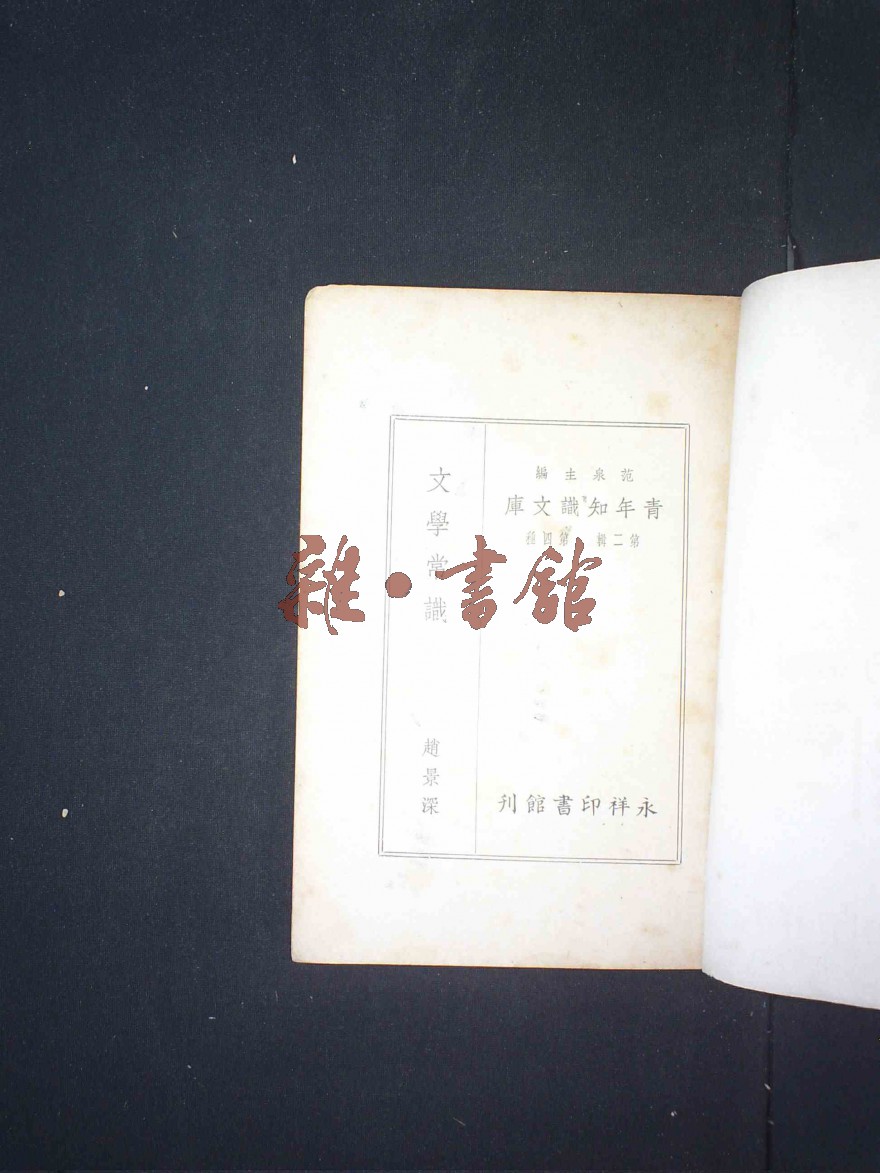 范泉主編
青年知識文庫
第二輯 第四種
文學常識
趙景深
永祥印書館刊
雜·書館